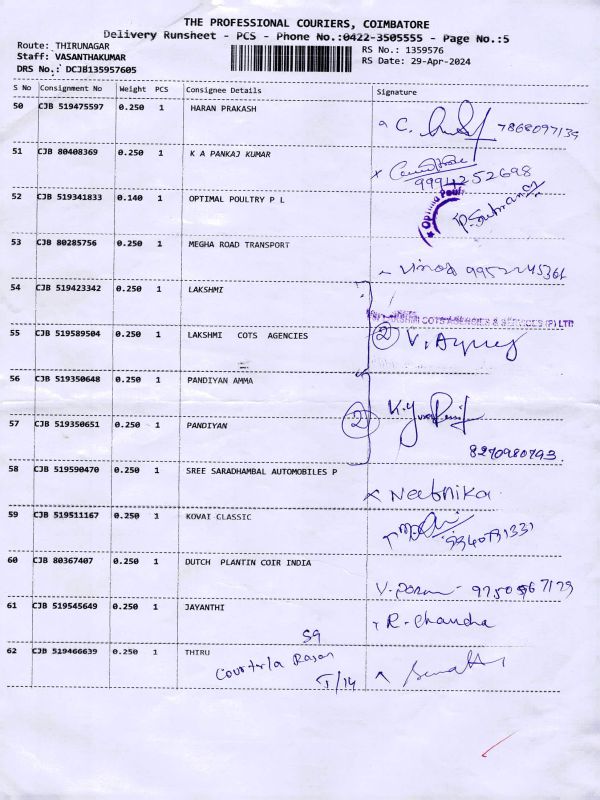 THE PROFESSIONAL COURIERS, COIMBATORE
Delivery Runsheet - PCS - Phone No.:0422-3505555 - Page No.:5
Route: THIRUNAGAR
Staff: VASANTHAKUMAR
DRS No.: DCJB135957605
RS No.: 1359576
RS Date: 29-Apr-2024
S No Consignment No Weight PCS Consignee Details Signature
50 CJB 519475597 0.250 1 HARAN PRAKASH C. 7868097139
51 CJB 80408369 0.250 1 K A PANKAJ KUMAR
9994252698
52 CJB 519341833 0.140 1 OPTIMAL POULTRY P L
53 CJB 80285756 0.250 1 MEGHA ROAD TRANSPORT
Vinod
54 CJB 519423342 0.250 1 LAKSHMI
COTS AGENCIES & SERVICES (P) LTD
55 CJB 519589504 0.250 1 LAKSHMI COTS AGENCIES 2
56 CJB 519350648 0.250 1 PANDIYAN AMMA
57 CJB 519350651 0.250 1 PANDIYAN 2
8270980793
58 CJB 519590470 0.250 1 SREE SARADHAMBAL AUTOMOBILES P
Neebnika
59 CJB 519511167 0.250 1 KOVAI CLASSIC
60 CJB 80367407 0.250 1 DUTCH PLANTIN COIR INDIA
61 CJB 519545649 0.250 1 JAYANTHI R. Chandra
59
62 CJB 519466639 0.250 1 THIRU
I/14